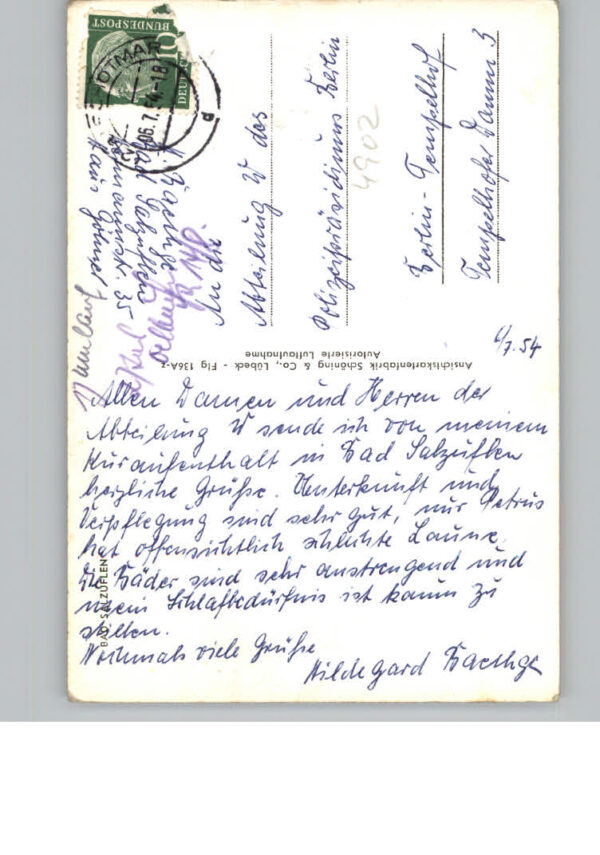 6/7.54
Allen Damen und Herren der
Abteilung W sende ich von meinem
Kuraufenthalt in Bad Salzuflen
herzliche Grüße. Unterkunft und
Verpflegung sind sehr gut, nur Petrus
hat offensichtlich schlechte Laune.
Die Bäder sind sehr anstrengend und
mein Schlafbedürfnis ist kaum zu
stillen.
Nochmals viele Grüße
Hildegard Baethge
BAD SALZUFLEN
Ansichtskartenfabrik Schöning & Co., Lübeck - Flg 136A-z
Autorisierte Luftaufnahme
DEUTSCHE
BUNDESPOST
10
06.7.54.-18
d
Baethge
Bad Salzuflen
35
An die
Abteilung W des
Polizeipräsidiums Berlin
Berlin-Tempelhof
Tempelhofer Damm 3
4902
Umlauf